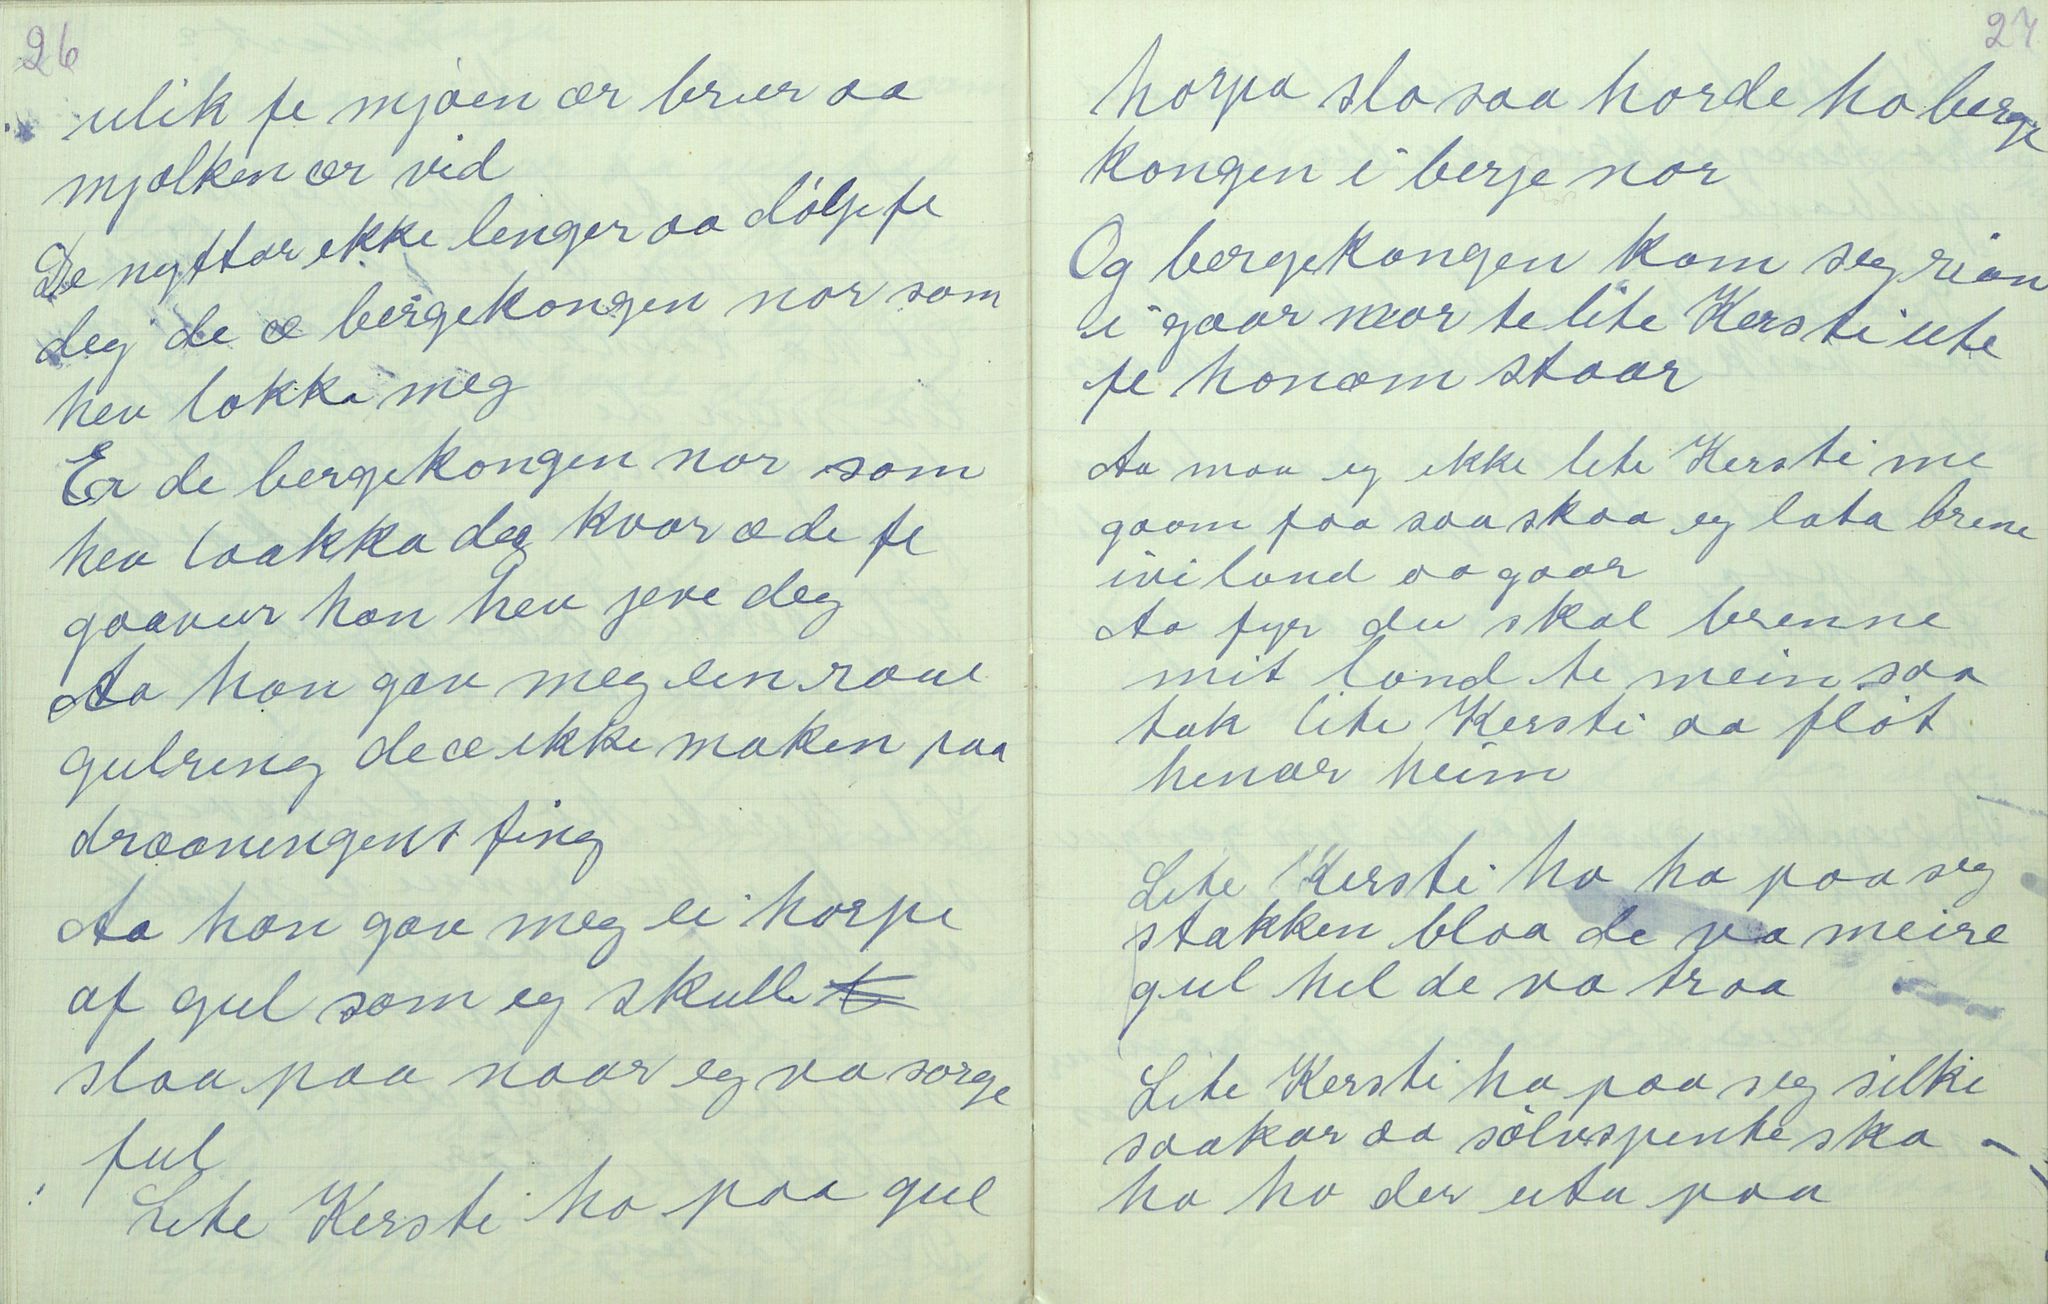 26
ulik fe mjøen ær brur aa
mjølken ær vid
De nyttar ikke lenger aa dölje fe
deg de æ bergekongen nor som
hev lokka meg
Er de bergekongen nor som
hev laakka deg kvar æ de fe
gaavur han hev jeve deg
Aa han gav meg ein raue
gulring de æ ikke maken paa
drøøningens fing
Aa han gav meg ei horpe
af gul som eg skulle
slaa paa naar eg va sorge
ful
Lite Kersti ho paa gul
27
horpa slo saa horde ho berge
kongen i berje nor
Og bergekongen kom seg rian
i gaar neor te lite Kersti ute
fe honom staar
Aa maa eg ikke lite Kersti me
gaam faa saa skaa eg lata brene
ivi land aa gaar
Aa fyr du skal brenne
mit land te mein saa
tak lite Kersti aa flöt
henar heim
Lite Kersti ho ha paa seg
stakken blaa de va meire
gul hel de va traa
Lite Kersti ha paa seg silki
saakar aa sölvspente ska
ho ho der uta paa